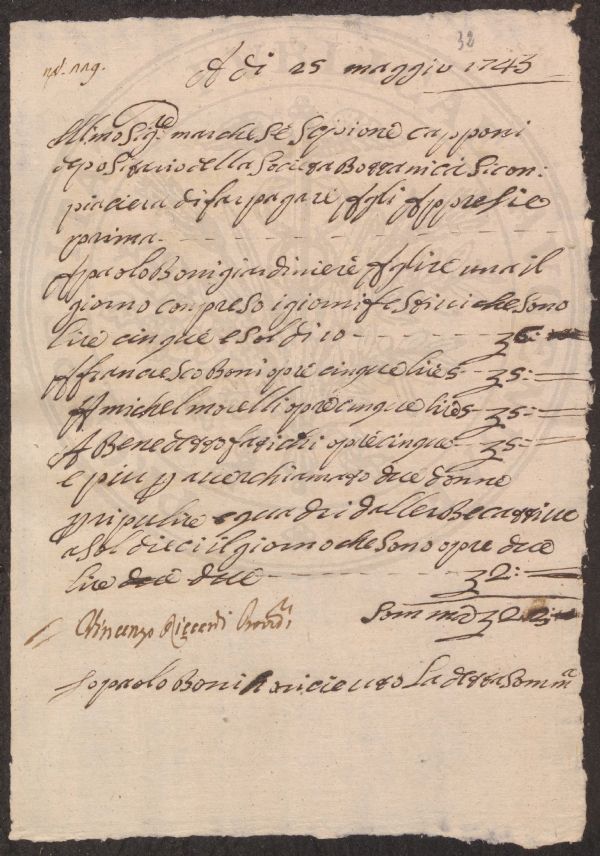 32
nº. 119.
A di 25 maggio 1743
Illmo Sigre marchese Scipione capponi
depositario della Societa Bottanica si con:
piacera di far pagare A gli Appresie
prima
A paolo Boni giardiniere A lire una il
giorno conpreso i giorni festivi che sono
lire cinque e soldi 10
A francesco Boni opre cinque lire 5 - 35:
A michel morelli opre cinque lire 5 - 35:
A Benedetto opre cinque - 35:
e piu p aver chiamato due donne
p ripulire e quadri dalle
a sol dieci il giorno che sono opre due
lire due - 32:
Vincenzo
Somma
Io paolo Boni o ricieuto La detta Somma